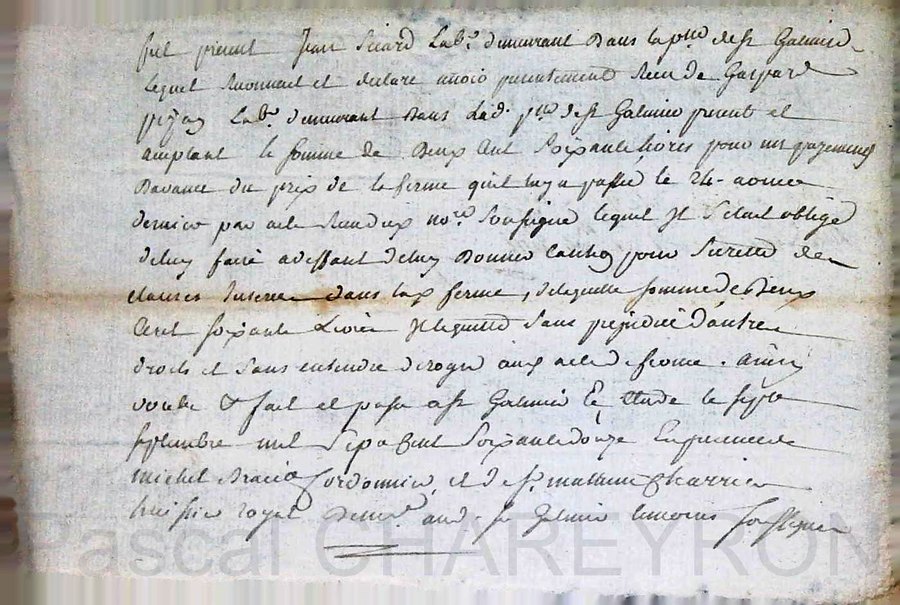 fut present Jean Sicard Lab.r demeurant dans la p.sse de St Galmier
lequel reconnait et declare avoir presentement Receu de Gaspard
Lab.r demeurant dans Lad. p.sse de St Galmier present et
acceptant la somme de deux cent soixante livres pour un payement
davance du prix de la ferme quil luy a passé le 24
dernier par acte no.re soussigné lequel Il setait obligé
deluy faire a deffaut deluy donner caution pour suretté des
clauses Inserees dans lad ferme, delaquelle somme de deux
cent soixante Livres Il lequitte sans prejudice dautres
droits et sans entendre deroger aux acte de ferme. ainsy
voulu & fait et passé a St Galmier Etude le sept
septembre mil sept Cent soixante douze En presence de
michel Cordonnier et de S.r mathieu Charrier
huissier royal demeur.t aud. St Galmier temoins soussignes
Pascal CHAREYRON